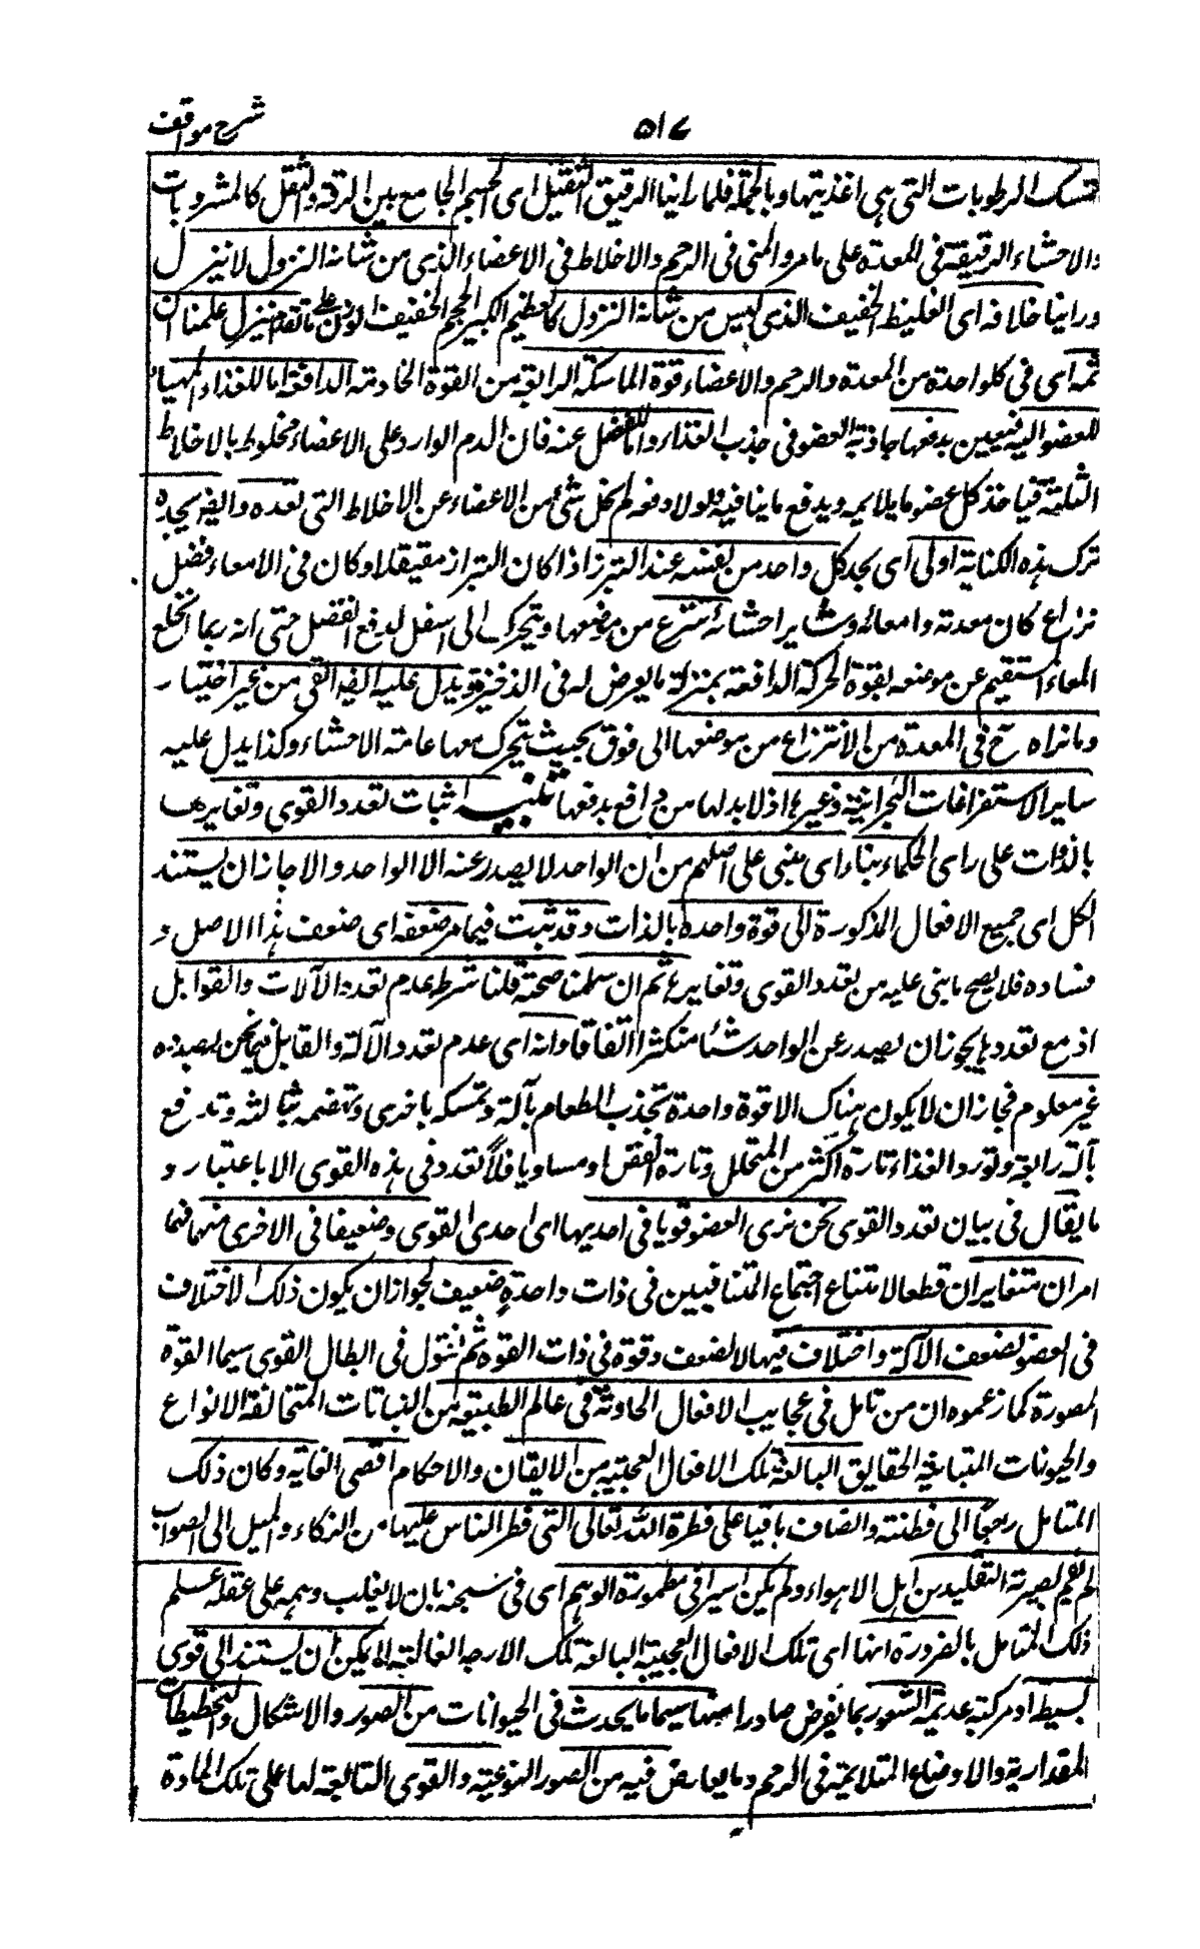 شرح مواقف
٥١٧
تمسك الرطوبات التى هى اغذيتها وبالجملة فلما راينا الرقيق الثقيل اى الجسم الجامع بين الرقة والثقل كالمشروبات
والاحشاء الرقيقة فى المعدة على ما مر والمنى فى الرحم والاخلاط فى الاعضاء الذى من شانه النزول لا ينزل
وراينا خلافه اى الغليظ الخفيف الذى ليس من شانه النزول كالعظيم الكبير الحجم الخفيف الوزن على ما تقدم ينزل علمنا ان
ثمه اى فى كلواحدة من المعدة والرحم والاعضاء قوة الماسكة الرابعة من القوة الخادمة الدافعة اما للغذاء المهيا
للعضو اليه فيعين بدفعها جاذبة العضو فى جذب الغذاء واما للفضل عنه فان الدم الوارد على الاعضاء مخلوط بالاخلاط
الثلثة فياخذ كل عضو ما يلايمه ويدفع ما ينافيه فلولا دفعه لم يخل شئ من الاعضاء عن الاخلاط التى تعده والضير يجده
ترك هذه الكناية اولى اى يجد كل واحد من نفسه عند التبرز اذا كان التبراز مقيقلا او كان فى الامعاء فضل
نزاع كان معدته وامعائه وساير احشائه تنتزع من موضعها وتتحرك الى اسفل لدفع الفضل حتى انه ربما انخلع
المعاء المستقيم عن موضعه لقوة الحركة الدافعة بمنزلة ما يعرض له فى الذخيرة ويدل عليه ايضا القى من غير اختيار
وما نراه ح فى المعدة من الانتزاع من موضعها الى فوق بحيث يتحرك معها عامة الاحشاء وكذا يدل عليه
ساير الاستفراغات البحرانية وغيرها اذ لا بد لها من دافع يدفعها تنبيه اثبات تعدد القوى وتغايرها
بالذات على راى الحكماء بناء اى مبنى على اصلهم من ان الواحد لا يصدر عنه الا الواحد والا جاز ان يستند
الكل اى جميع الافعال المذكورة الى قوة واحدة بالذات وقد ثبت فيما مر ضعفه اى ضعف هذا الاصل و
فساده فلا يصح ما بنى عليه من تعدد القوى وتغايرها ثم ان سلمنا صحته قلنا شرطه عدم تعدد الآلات والقوابل
اذ مع تعددها يجوز ان يصدر عن الواحد شئا متكثرا اتفاقا وانه اى عدم تعدد الآلة والقابل فيما نحن بصدده
غير معلوم فجاز ان لا يكون هناك الا قوة واحدة تجذب الطعام بآلة وتمسكه باخرى وتهضمه بثالثة وتدفع
بآلة رابعة وتورد الغذاء تارة اكثر من المتحلل وتارة انقص او مساويا فلا تعدد فى هذه القوى الا باعتبار و
ما يقال فى بيان تعدد القوى نحن نرى العضو قويا فى احديها اى احدى القوى وضعيفا فى الاخرى منها فهما
امران متغايران قطعا لامتناع اجتماع المتنافيين فى ذات واحدة ضعيف لجواز ان يكون ذلك الاختلاف
فى العضو لضعف الآلة واختلاف فيها لا لضعف وقوة فى ذات القوة ثم نقول فى ابطال القوى سيما القوة
المصورة كما زعموه ان من تامل فى عجايب الافعال الحادثة فى عالم الطبيعة من النباتات المتخالفة الانواع
والحيونات المتباينة الحقايق البالغة تلك الافعال العجيبة من الايقان والاحكام اقصى الغاية وكان ذلك
المتامل راجعا الى فطنته وانصاف باقيا على فطرة الله تعالى التى فطر الناس عليها من الذكاء والميل الى الصواب
لم تعم بصيرته التقليد من اهل الاهواء ولم يكن اسيرا فى مطمورة الوهم اى فى سجنه بان لا يغلب وهمه على عقله علم
ذلك المتامل بالضرورة انها اى تلك الافعال العجيبة البالغة تلك الدرجة العالية لا يمكن ان يستند الى قوى
بسيطة او مركبة عديمة الشعور بما يفرض صادرا منها سيما ما يحدث فى الحيوانات من الصور والاشكال والتخطيطات
المقدارية والاوضاع المتلائمة فى الرحم وما يعارض فيه من الصور النوعية والقوى التابعة لها على تلك المادة